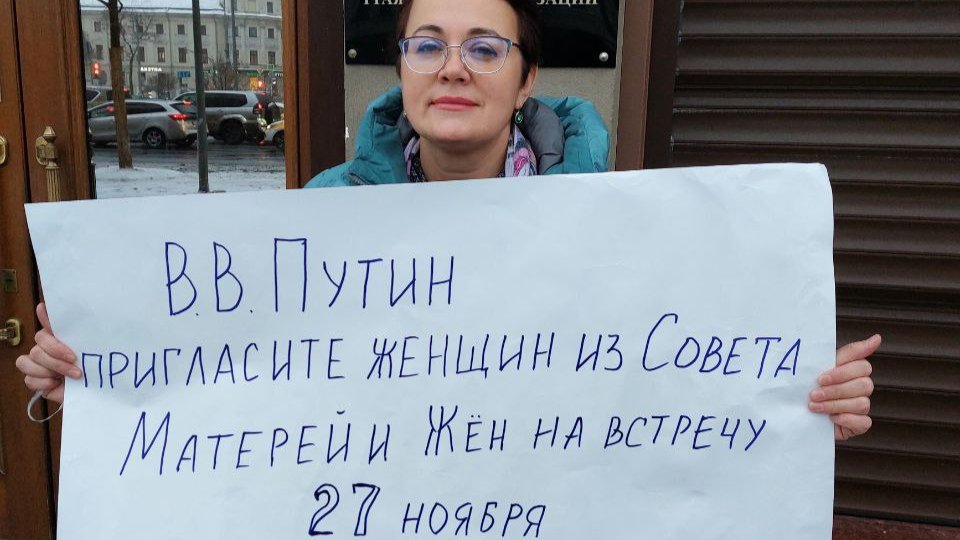 В.В. ПУТИН
ПРИГЛАСИТЕ ЖЕНЩИН ИЗ СОВЕТА
МАТЕРЕЙ И ЖЁН НА ВСТРЕЧУ
27 НОЯБРЯ